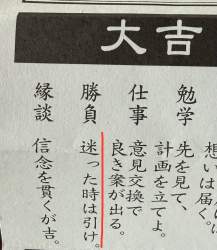 大吉
想いは届く。
勉学
先を見て、
計画を立てよ。
仕事
意見交換で
良き案が出る。
勝負
迷った時は引け。
縁談
信念を貫くが吉。